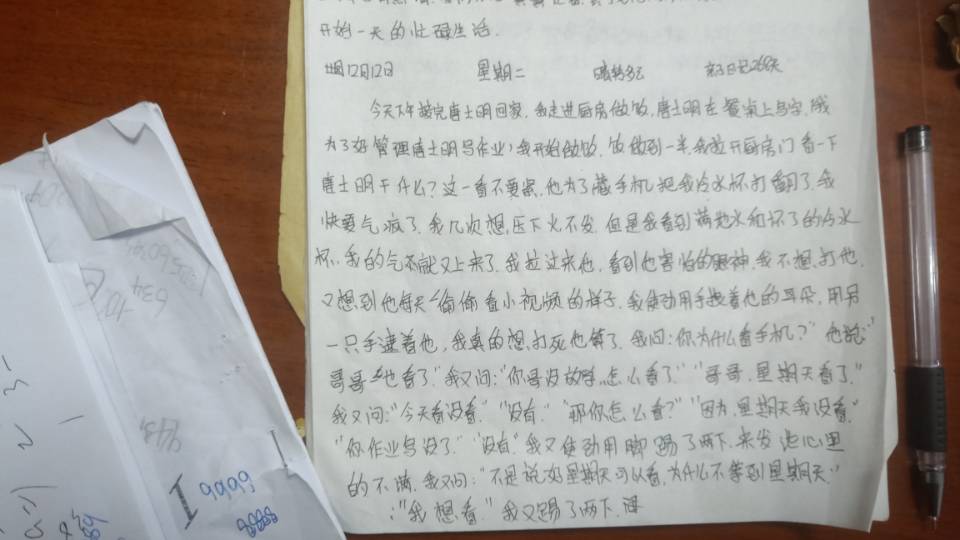 开始一天的忙碌生活.
12月12日 星期二 晴转多云 亲子日记268天
今天下午接完唐士明回家,我走进厨房做饭,唐士明在餐桌上写字,我
为了好管理唐士明写作业,我开始做饭,饭做到一半,我拉开厨房门看一下
唐士明干什么?这一看不要紧,他为了藏手机把我冷水杯打翻了,我
快要气疯了,我几次想,压下火不发.但是我看到满地水和坏了的冷水
杯,我的气不就又上来了,我拉过来他,看到他害怕的眼神,我不想,打他,
又想到他每天偷偷看小视频的样子,我使劲用手拽着他的耳朵,用另
一只手逮着他,我真的想,打死他算了,我问:你为什么看手机?”他说:“
哥哥也看了”我又问:“你哥没放学,怎么看了”“哥哥,星期天看了.”
我又问:“今天看没看.”“没看.”“那你怎么看?”“因为,星期天我没看.”
“你作业写没了”“没有.”我又使劲用脚踢了两下,来发泄心里
的不满,我又问:“不是说好星期天可以看,为什么不等到星期天.”
:“我想看.”我又踢了两下,
9999